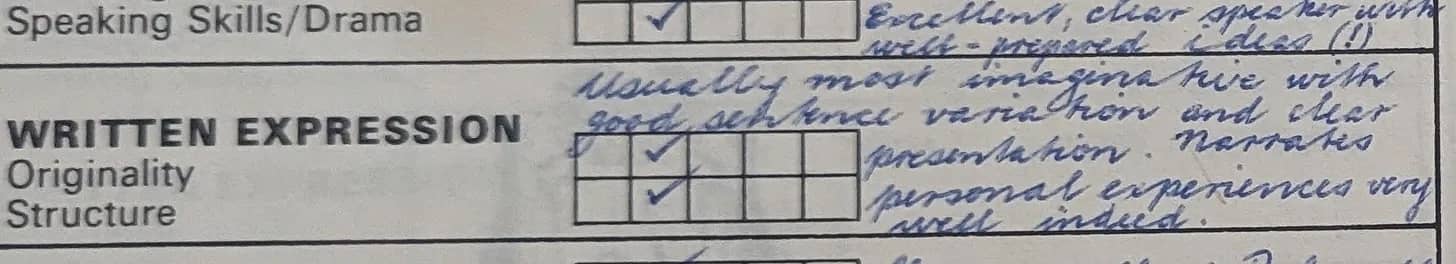 Speaking Skills/Drama
Excellent, clear speaker with
well-prepared ideas (!)
WRITTEN EXPRESSION
Originality
Structure
Usually most imaginative with
good sentence variation and clear
presentation. Narrates
personal experiences very
well indeed.